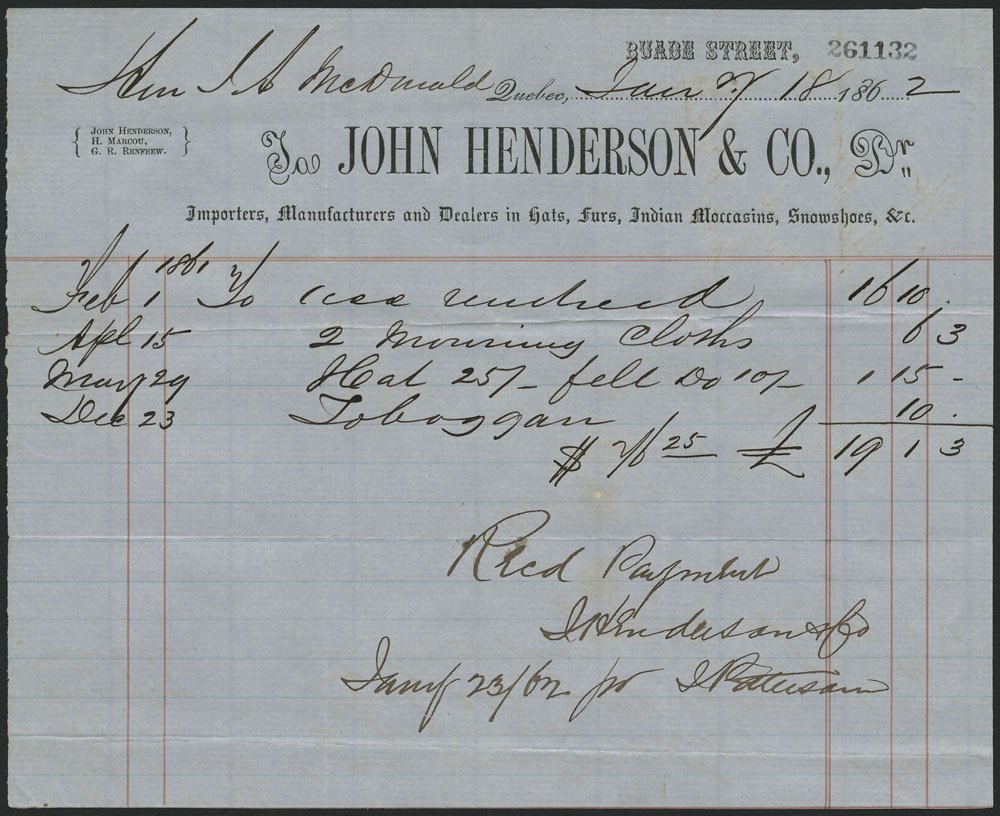 BUADE STREET, 261132
Hon J A McDonald Quebec, Jany 18 1862
JOHN HENDERSON,
H. MARCOU,
G. R. RENFREW.
To JOHN HENDERSON & CO., Dr
Importers, Manufacturers and Dealers in Hats, Furs, Indian Moccasins, Snowshoes, &c.
1861
Feb 1 To acc rendered 16 10 .
Apl 15 2 Mourning Cloths 6 3
May 29 Hat 25/- felt Do 10/- 1 15 -
Dec 23 Toboggan 10 .
$ 76 25 £ 19 1 3
Recd Payment
J Henderson & Co
Jany 23/62 pr J Patterson